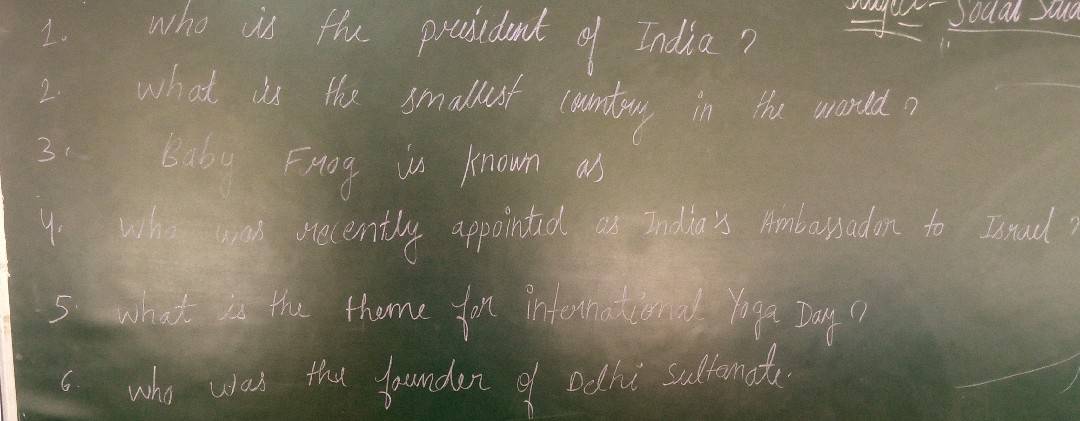 Subject - Social Scie
1. who is the president of India ?
2. what is the smallest country in the world ?
3. Baby Frog is known as
4. who was recently appointed as India's Ambassador to Israel ?
5. what is the theme for international Yoga Day ?
6. who was the founder of Delhi Sultanate.